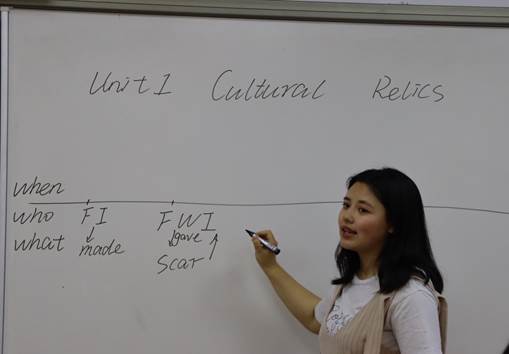 Unit 1 Cultural Relics
when
who FI FWI
what made gave
scar